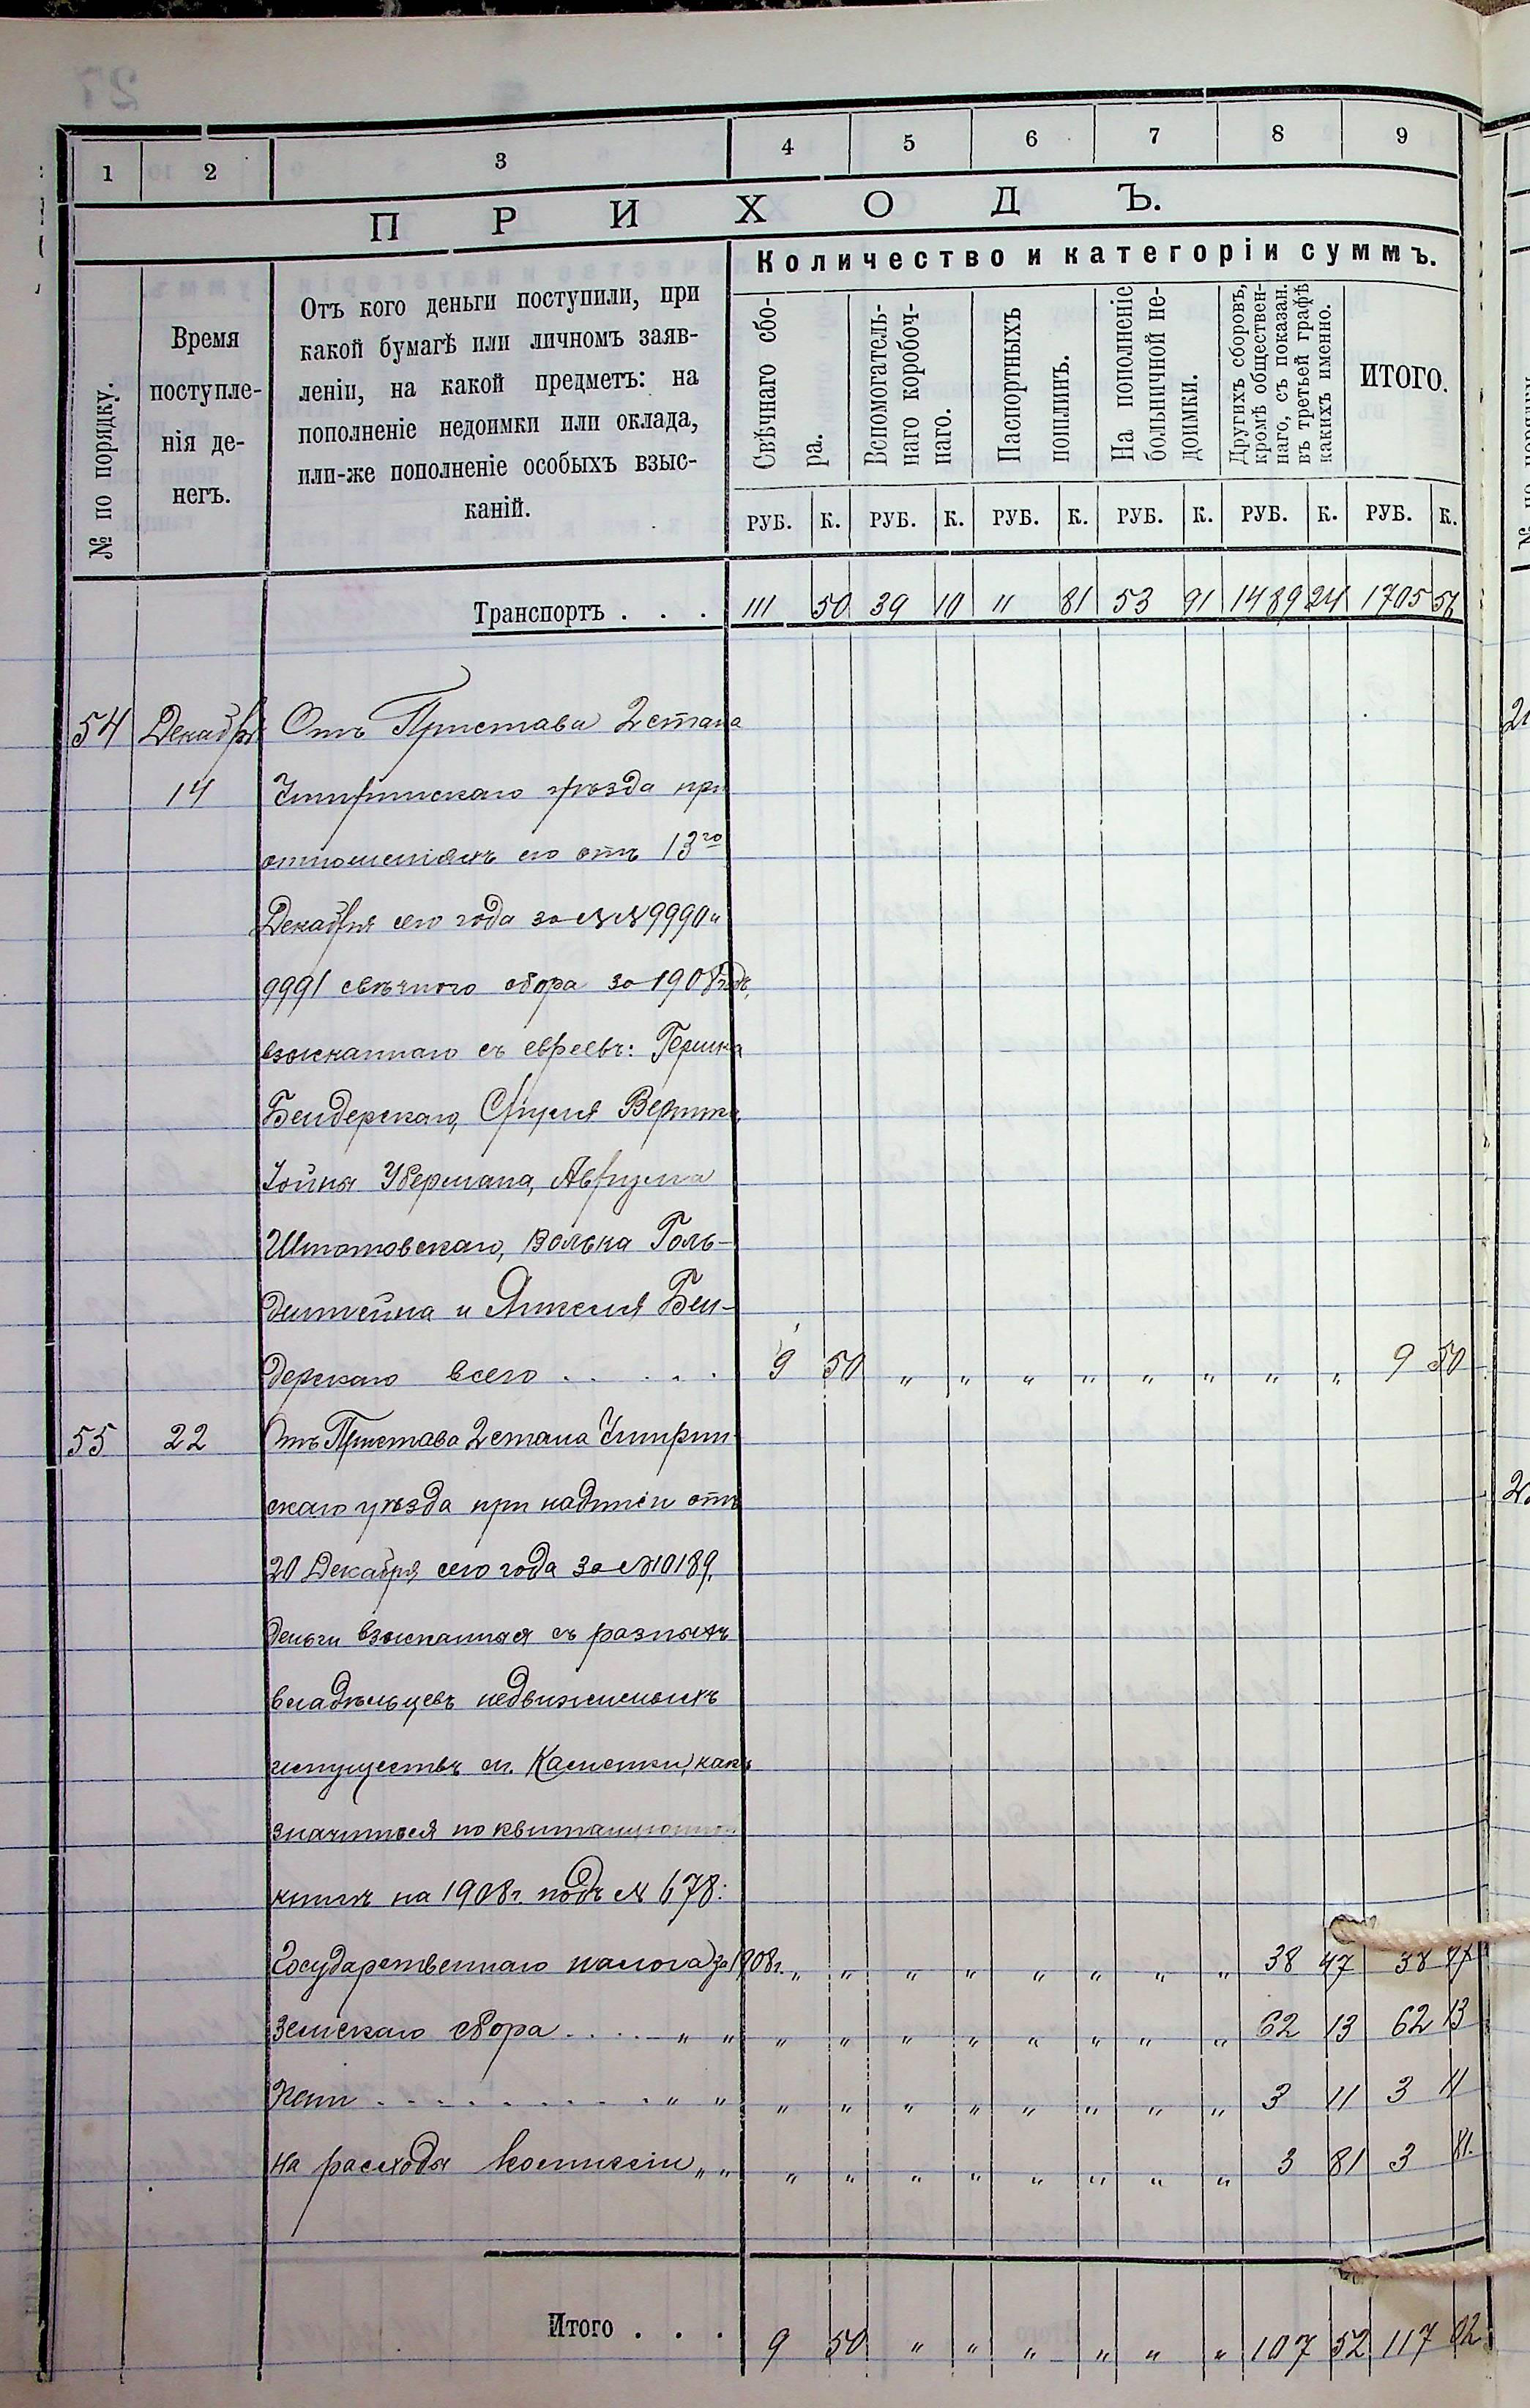 1 2 3 4 5 6 7 8 9
ПРИХОДЪ.
Количество и категоріи суммъ.
№ по порядку.
Время
поступле-
нія де-
негъ.
Отъ кого деньги поступили, при
какой бумагѣ или личномъ заяв-
леніи, на какой предметъ: на
пополненіе недоимки или оклада,
или-же пополненіе особыхъ взыс-
каній.
Свѣчнаго сбо-
ра.
Вспомогатель-
наго коробоч-
наго.
Паспортныхъ
пошлинъ.
На пополненіе
больничной не-
доимки.
Другихъ сборовъ,
кромѣ обществен-
наго, съ показан.
въ третьей графѣ
какихъ именно.
ИТОГО.
РУБ. К. РУБ. К. РУБ. К. РУБ. К. РУБ. К. РУБ. К.
Транспортъ . . . 111 50 39 10 " 81 53 91 1489 24 1705 56
54 Декабря Отъ Пристава 2 стана
14 уѣзда при
отношеніяхъ его отъ 13го
Декабря сего года за №№ 9990 и
9991 свѣчного сбора за 1908 годъ,
взысканнаго съ евреевъ: Гершка
Бендерскаго, Сруля
Іойны Убермана, Аврума
Волька Голь-
дштейна и Янкеля Бен-
дерскаго всего . . . . . 9 50 " " " " " " " " 9 50
55 22 Отъ Пристава 2 стана
скаго уѣзда при надписи отъ
20 Декабря сего года за № 10189,
деньги взысканныя съ разныхъ
владѣльцевъ недвижимыхъ
имуществъ м. Каменки, какъ
значиться по квитанціонной
книгѣ на 1908 г. подъ № 678:
Государственнаго налога за 1908 г. " " " " " " " " 38 47 38 47
Земскаго сбора . . . . " " " " " " " " " " 62 13 62 13
Пени . . . . . . . . . . " " " " " " " " " " 3 11 3 11
На расходы комиссіи " " " " " " " " " " 3 81 3 81.
Итого . . . 9 50 " " " " " " 107 52 117 02